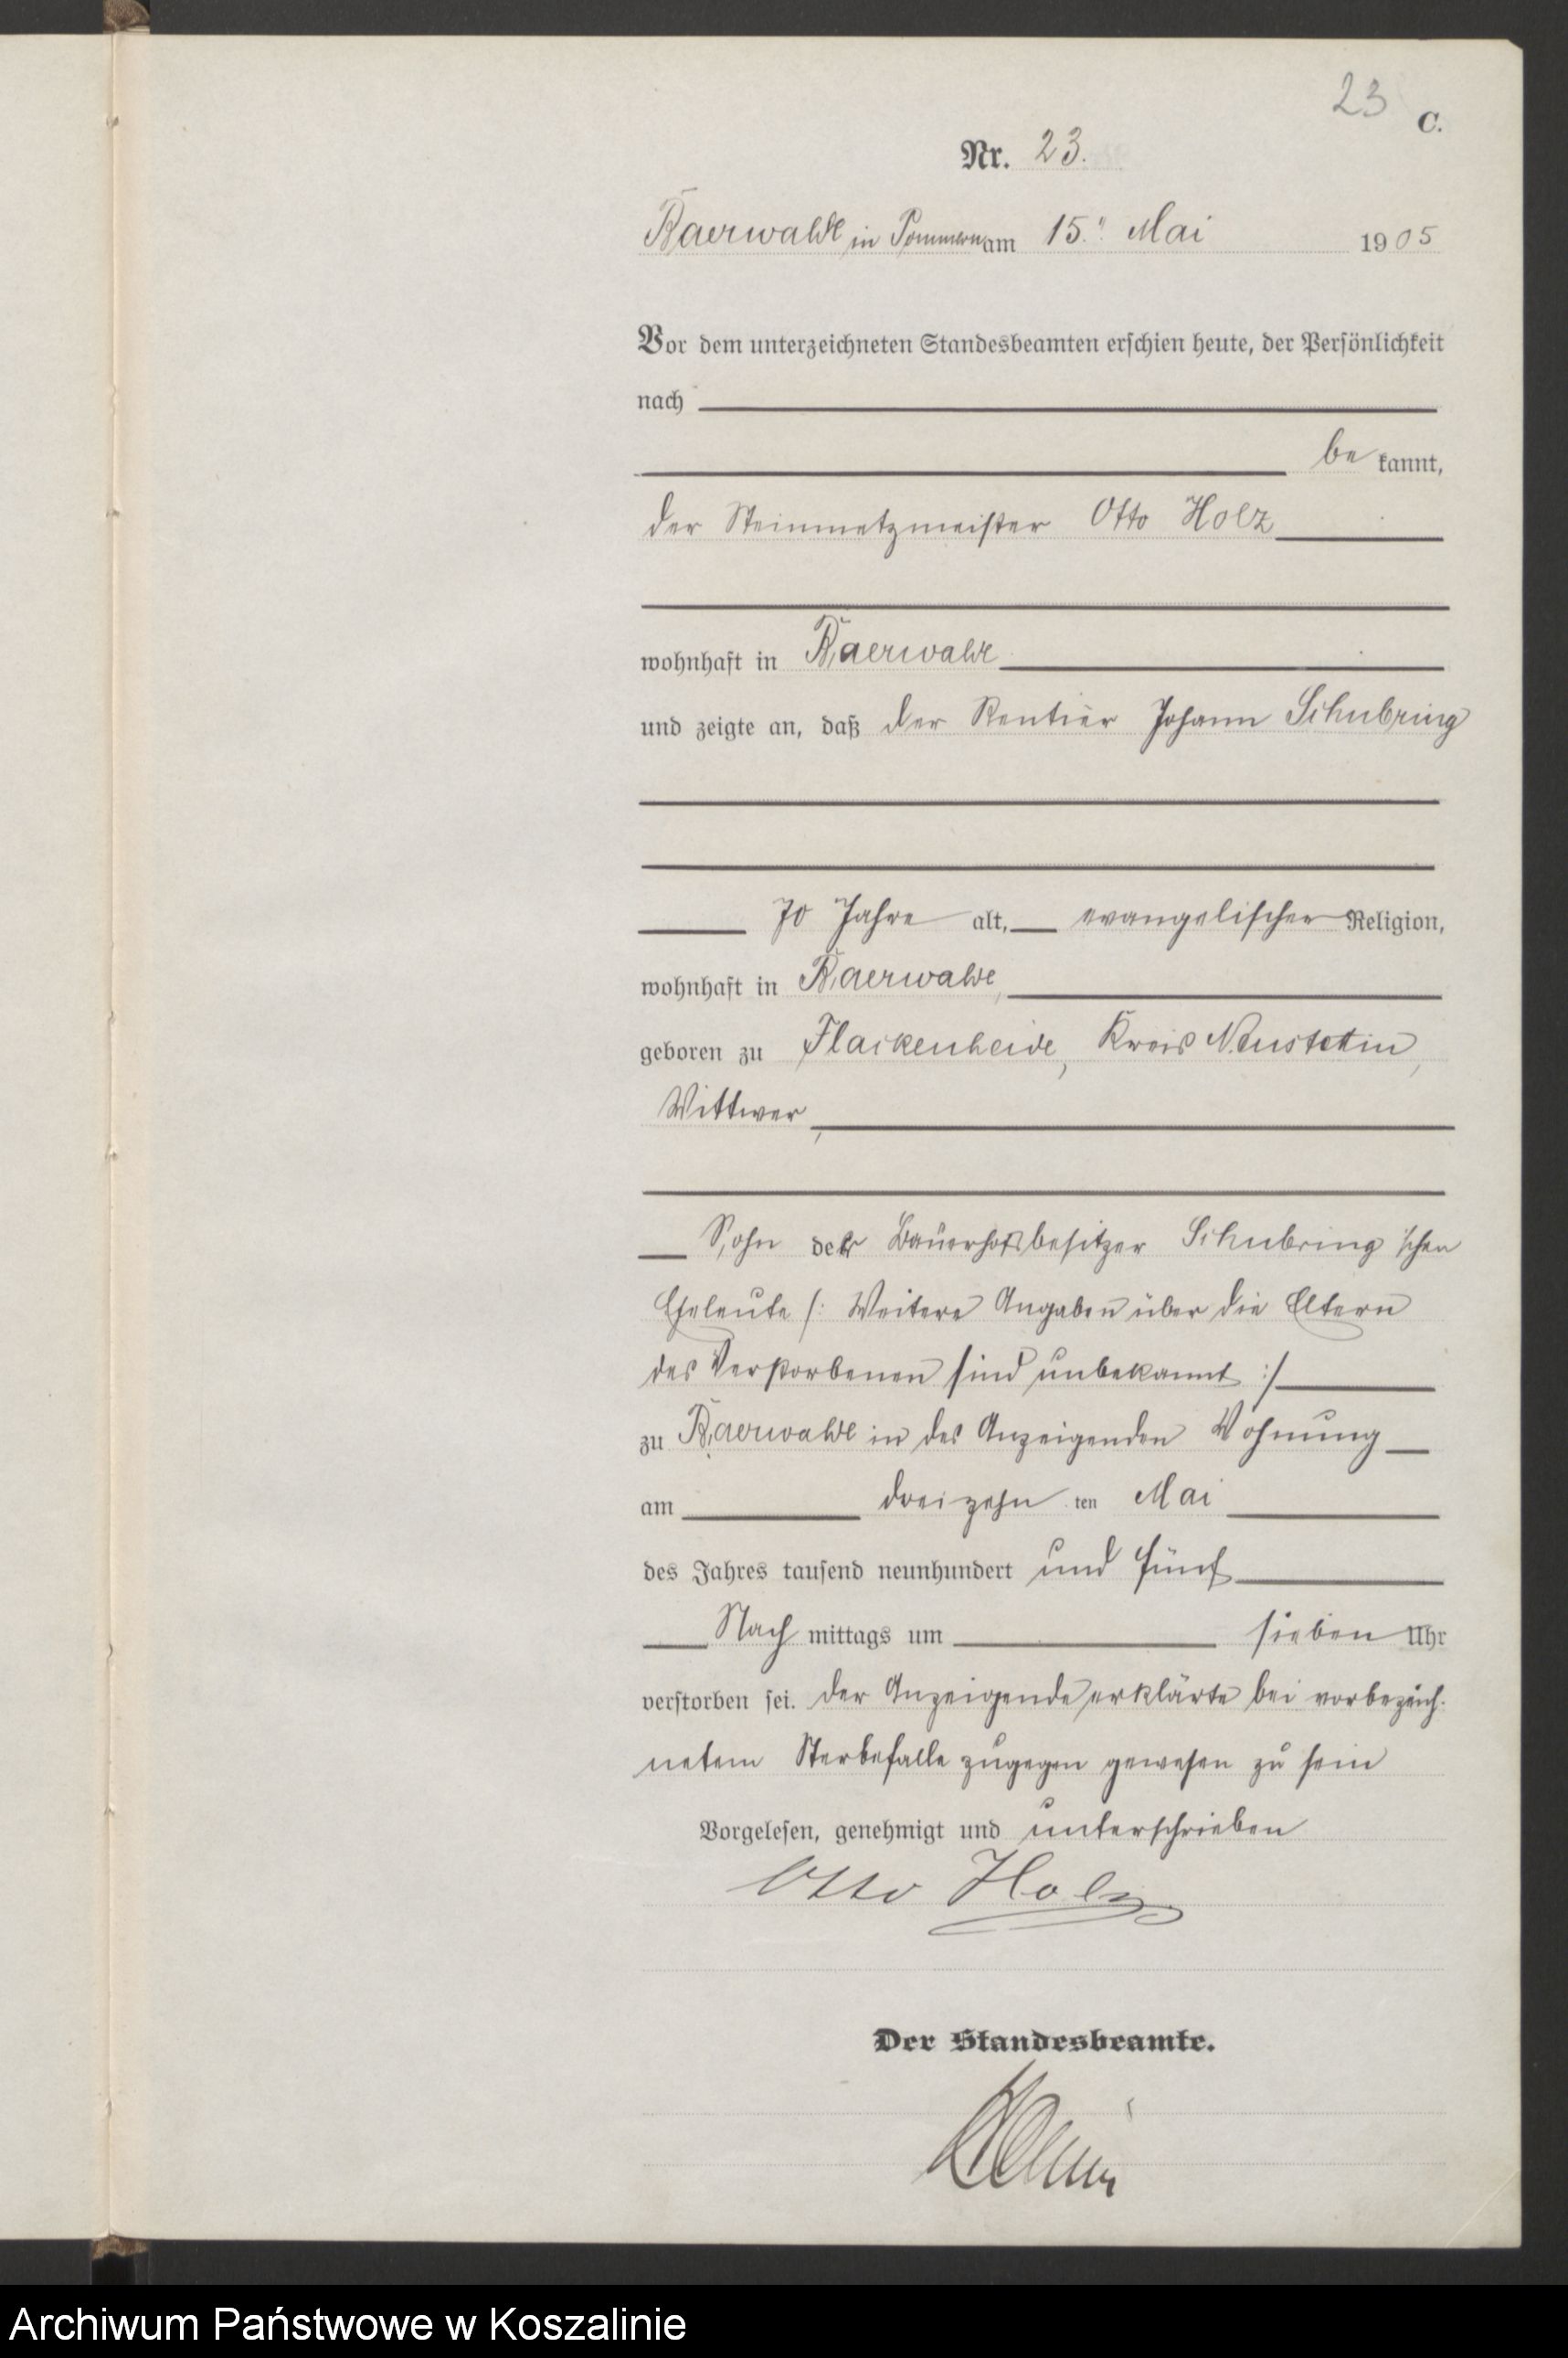 23
C.
Nr. 23.
Baerwalde in Pommern am 15.ten Mai 1905
Vor dem unterzeichneten Standesbeamten erschien heute, der Persönlichkeit
nach
be kannt,
der Steinmetzmeister Otto Holz
wohnhaft in Baerwalde
und zeigte an, daß der Rentier Johann Schubring
70 Jahre alt, evangelischer Religion,
wohnhaft in Baerwalde,
geboren zu Flackenheide, Kreis Neustettin,
Wittwer,
Sohn der Bauerhofsbesitzer Schubring'schen
Eheleute /: Weitere Angaben über die Eltern
des Verstorbenen sind unbekannt :/
zu Baerwalde in des Anzeigenden Wohnung
am dreizehn ten Mai
des Jahres tausend neunhundert und fünf
Nach mittags um sieben Uhr
verstorben sei. Der Anzeigende erklärte bei vorbezeich-
netem Sterbefalle zugegen gewesen zu sein
Vorgelesen, genehmigt und unterschrieben
Otto Holz
Der Standesbeamte.
Archiwum Państwowe w Koszalinie